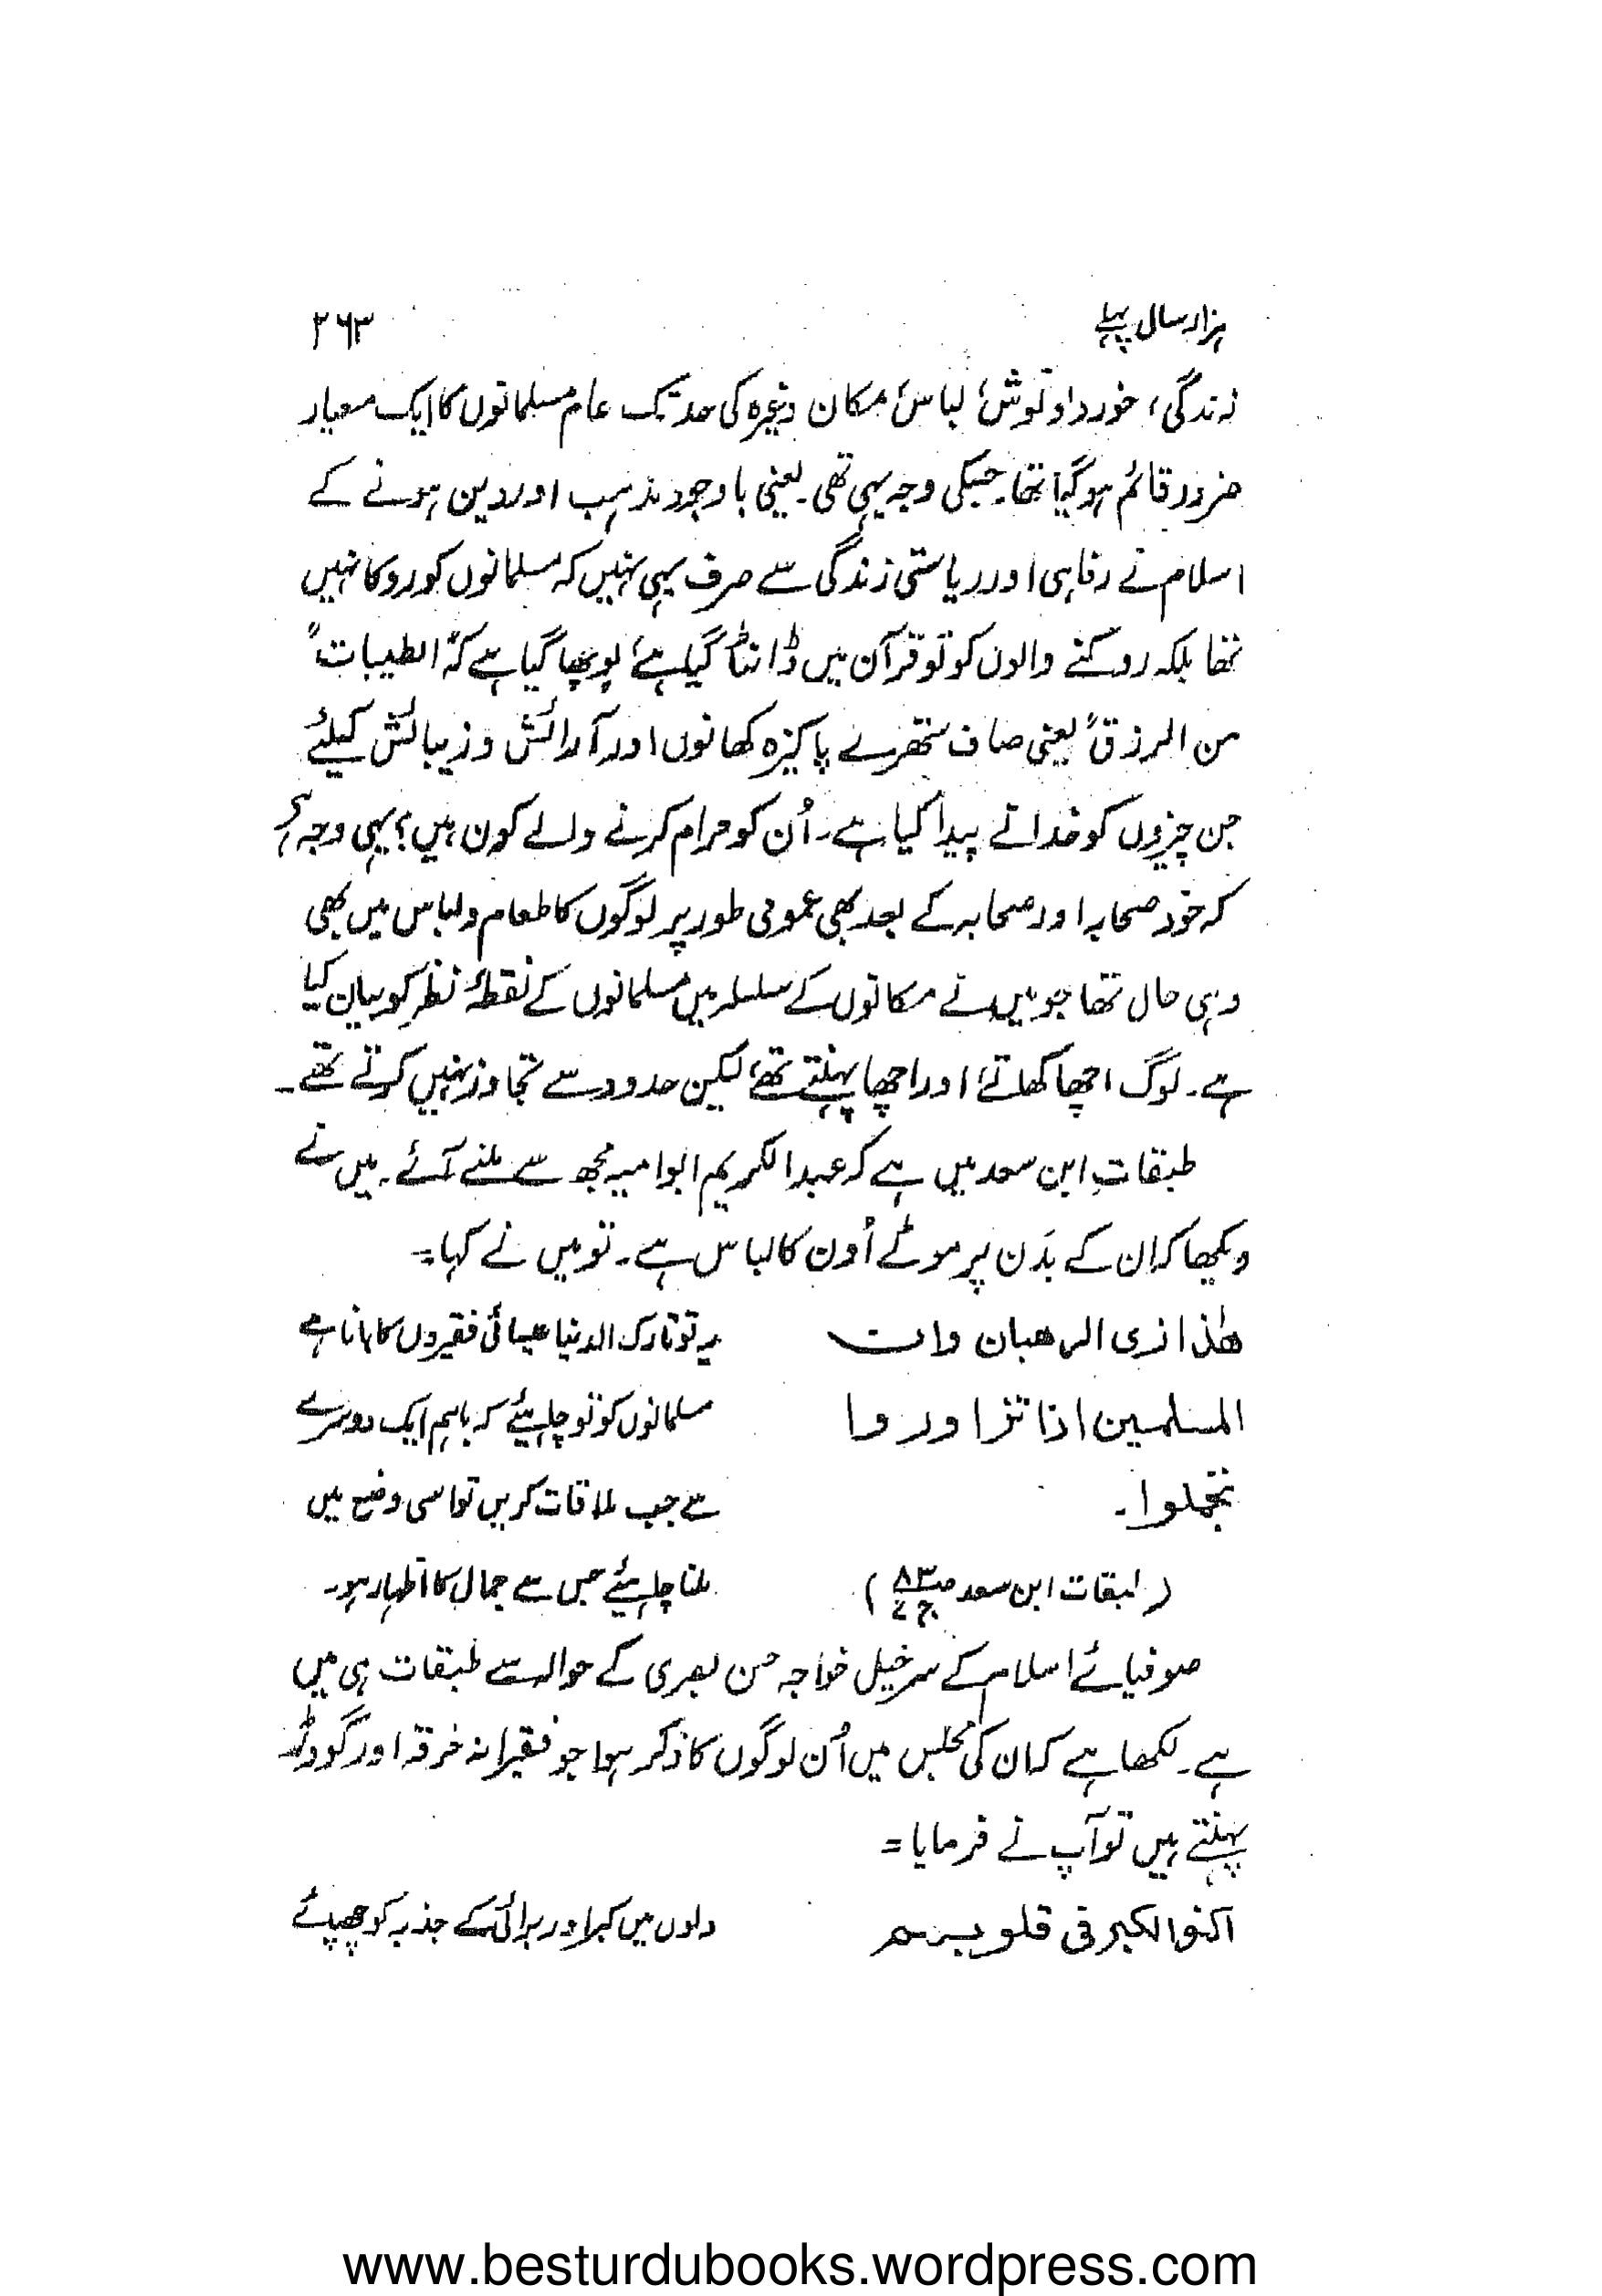 ہزار سال پہلے ۲۶۳
زندگی، خورد و نوش، لباس، مکان وغیرہ کی حد تک عام مسلمانوں کا ایک معیار
ضرور قائم ہوگیا تھا۔ جسکی وجہ یہی تھی۔ یعنی باوجود مذہب اور دین ہونے کے
اسلام نے رفاہی اور ریاستی زندگی سے صرف یہی نہیں کہ مسلمانوں کو روکا نہیں
تھا بلکہ روکنے والوں کو تو قرآن میں ڈانٹا گیا ہے، پوچھا گیا ہے کہ "الطیبات"
من الرزق" یعنی صاف ستھرے پاکیزہ کھانوں اور آرائش و زیبائش کیلئے
جن چیزوں کو خدا نے پیدا کیا ہے۔ اُن کو حرام کرنے والے کون ہیں؟ یہی وجہ ہے
کہ خود صحابہ اور صحابہ کے بعد بھی عمومی طور پر لوگوں کا طعام و لباس میں بھی
وہی حال تھا جو میں نے مکانوں کے سلسلہ میں مسلمانوں کے نقطۂ نظر کو بیان کیا
ہے۔ لوگ اچھا کھاتے، اور اچھا پہنتے تھے، لیکن حدود سے تجاوز نہیں کرتے تھے۔
طبقاتِ ابن سعد میں ہے کہ عبدالکریم ابوامیہ مجھ سے ملنے آئے۔ میں نے
دیکھا کہ ان کے بدَن پر موٹے اُون کا لباس ہے۔ تو میں نے کہا=
ھٰذا زی الرھبان وات
المسلمین اذا تزاوروا
تجملوا۔
(طبقات ابن سعد ص۸۳ ج۷)
یہ تو تارک الدنیا عیسائی فقیروں کا بانا ہے
مسلمانوں کو تو چاہیئے کہ باہم ایک دوسرے
سے جب ملاقات کریں تو اسی وضع میں
ملنا چاہیئے جس سے جمال کا اظہار ہو۔
صوفیائے اسلام کے سرخیل خواجہ حسن بصری کے حوالہ سے طبقات ہی میں
ہے۔ لکھا ہے کہ ان کی مجلس میں اُن لوگوں کا ذکر ہوا جو فقیرانہ خرقہ اور گودڑ
پہنتے ہیں تو آپ نے فرمایا=
اکنوا الکبر فی قلوبہم
دلوں میں کبر اور بڑائی کے جذبہ کو چھپائے
www.besturdubooks.wordpress.com